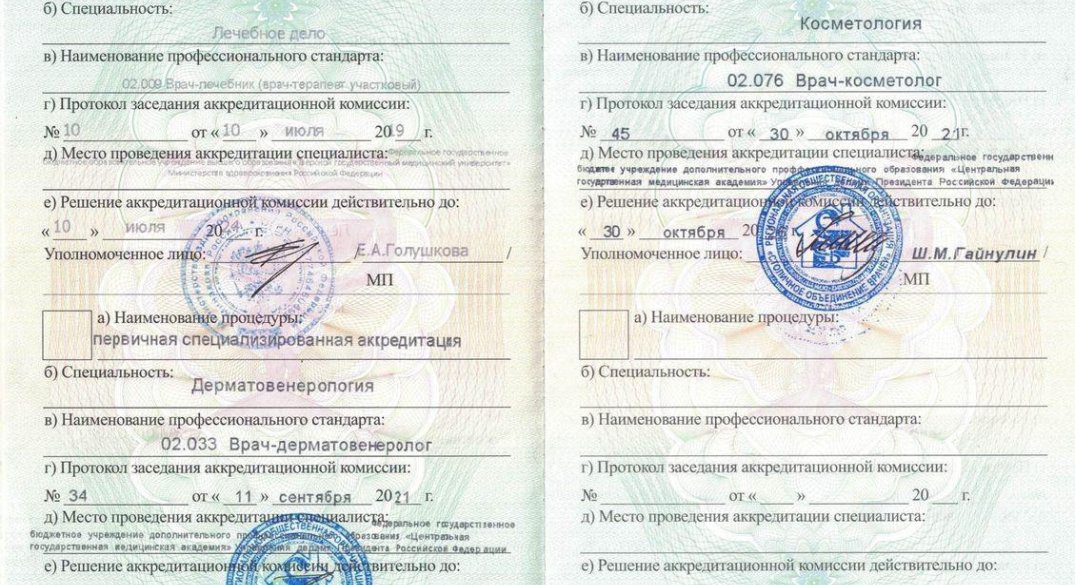 б) Специальность:
Лечебное дело
в) Наименование профессионального стандарта:
02.009 Врач-лечебник (врач-терапевт участковый)
г) Протокол заседания аккредитационной комиссии:
№ 10 от « 10 » июля 2019 г.
д) Место проведения аккредитации специалиста: Федеральное государственное
бюджетное образовательное учреждение высшего образования «Тверской государственный медицинский университет»
Министерства здравоохранения Российской Федерации
е) Решение аккредитационной комиссии действительно до:
« 10 » июля 2024 г.
Уполномоченное лицо: /Е.А.Голушкова /
МП
а) Наименование процедуры:
первичная специализированная аккредитация
б) Специальность:
Дерматовенерология
в) Наименование профессионального стандарта:
02.033 Врач-дерматовенеролог
г) Протокол заседания аккредитационной комиссии:
№ 34 от « 11 » сентября 2021 г.
д) Место проведения аккредитации специалиста: Федеральное государственное
бюджетное учреждение дополнительного профессионального образования «Центральная
государственная медицинская академия» Управления делами Президента Российской Федерации
е) Решение аккредитационной комиссии действительно до:
б) Специальность:
Косметология
в) Наименование профессионального стандарта:
02.076 Врач-косметолог
г) Протокол заседания аккредитационной комиссии:
№ 45 от « 30 » октября 2021г.
д) Место проведения аккредитации специалиста:
Федеральное государственн
бюджетное учреждение дополнительного профессионального образования «Центральная
государственная медицинская академия» Президента Российской Федерации
е) Решение аккредитационной комиссии действительно до:
« 30 » октября 20
Уполномоченное лицо: Ш.М.Гайнулин /
МП
РЕГИОНАЛЬНАЯ ОБЩЕСТВЕННАЯ ОРГАНИЗАЦИЯ
«СТОЛИЧНОЕ ОБЪЕДИНЕНИЕ ВРАЧЕЙ»
а) Наименование процедуры:
б) Специальность:
в) Наименование профессионального стандарта:
г) Протокол заседания аккредитационной комиссии:
№ от « » 20 г.
д) Место проведения аккредитации специалиста:
е) Решение аккредитационной комиссии действительно до: